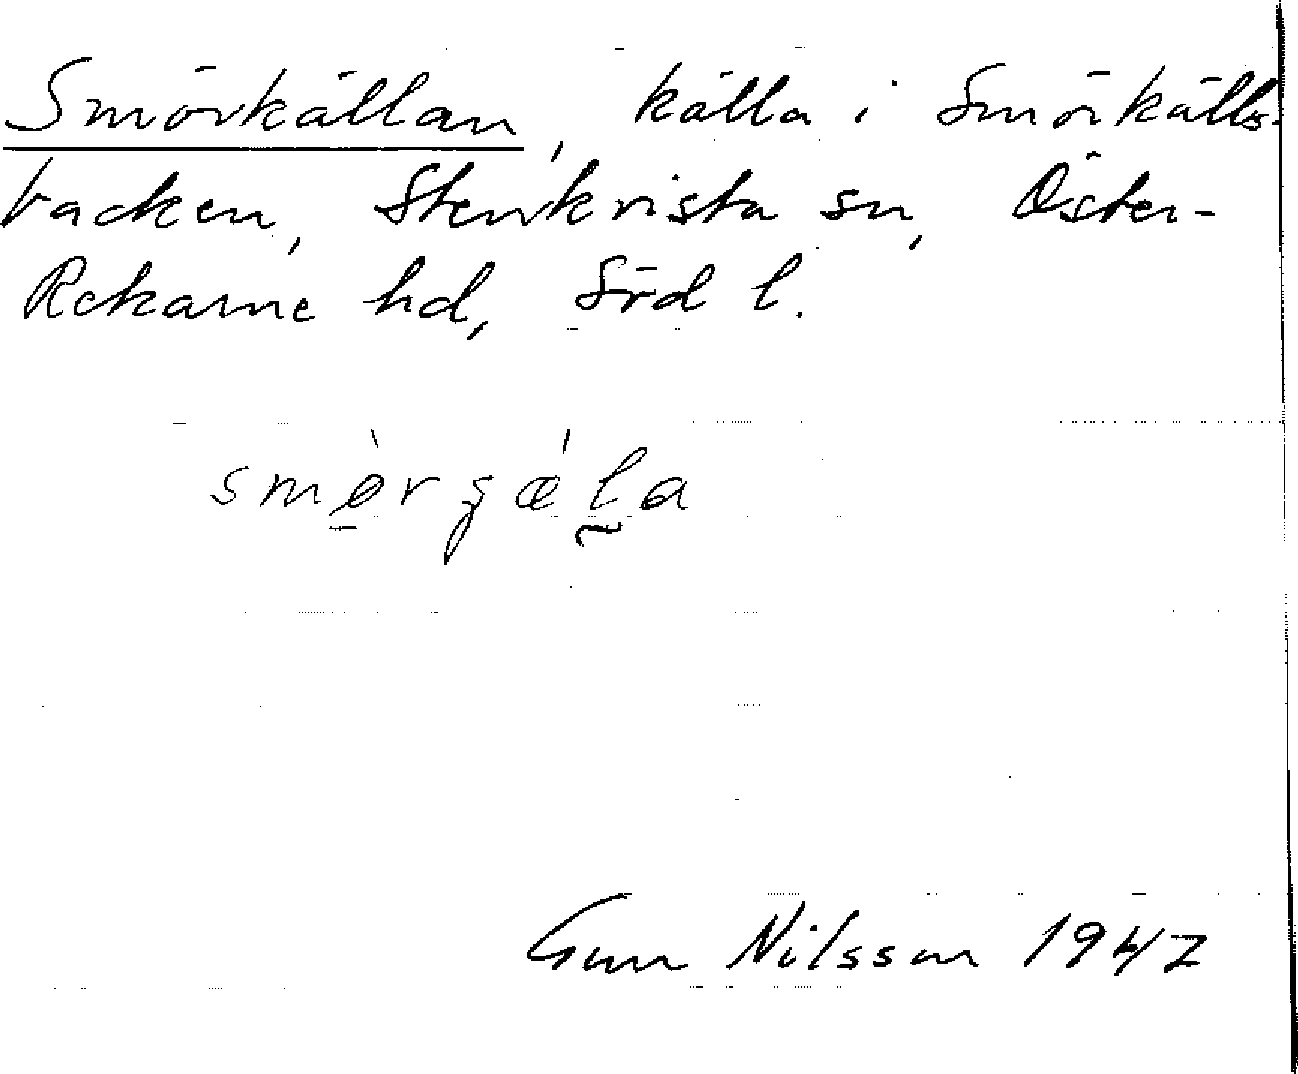 Smörkällan, källa i Smörkälls-
backen, Stenkvista sn, Öster-
Rekarne hd, Södl l.
smø̀rgǽla
Gun Nilsson 1947